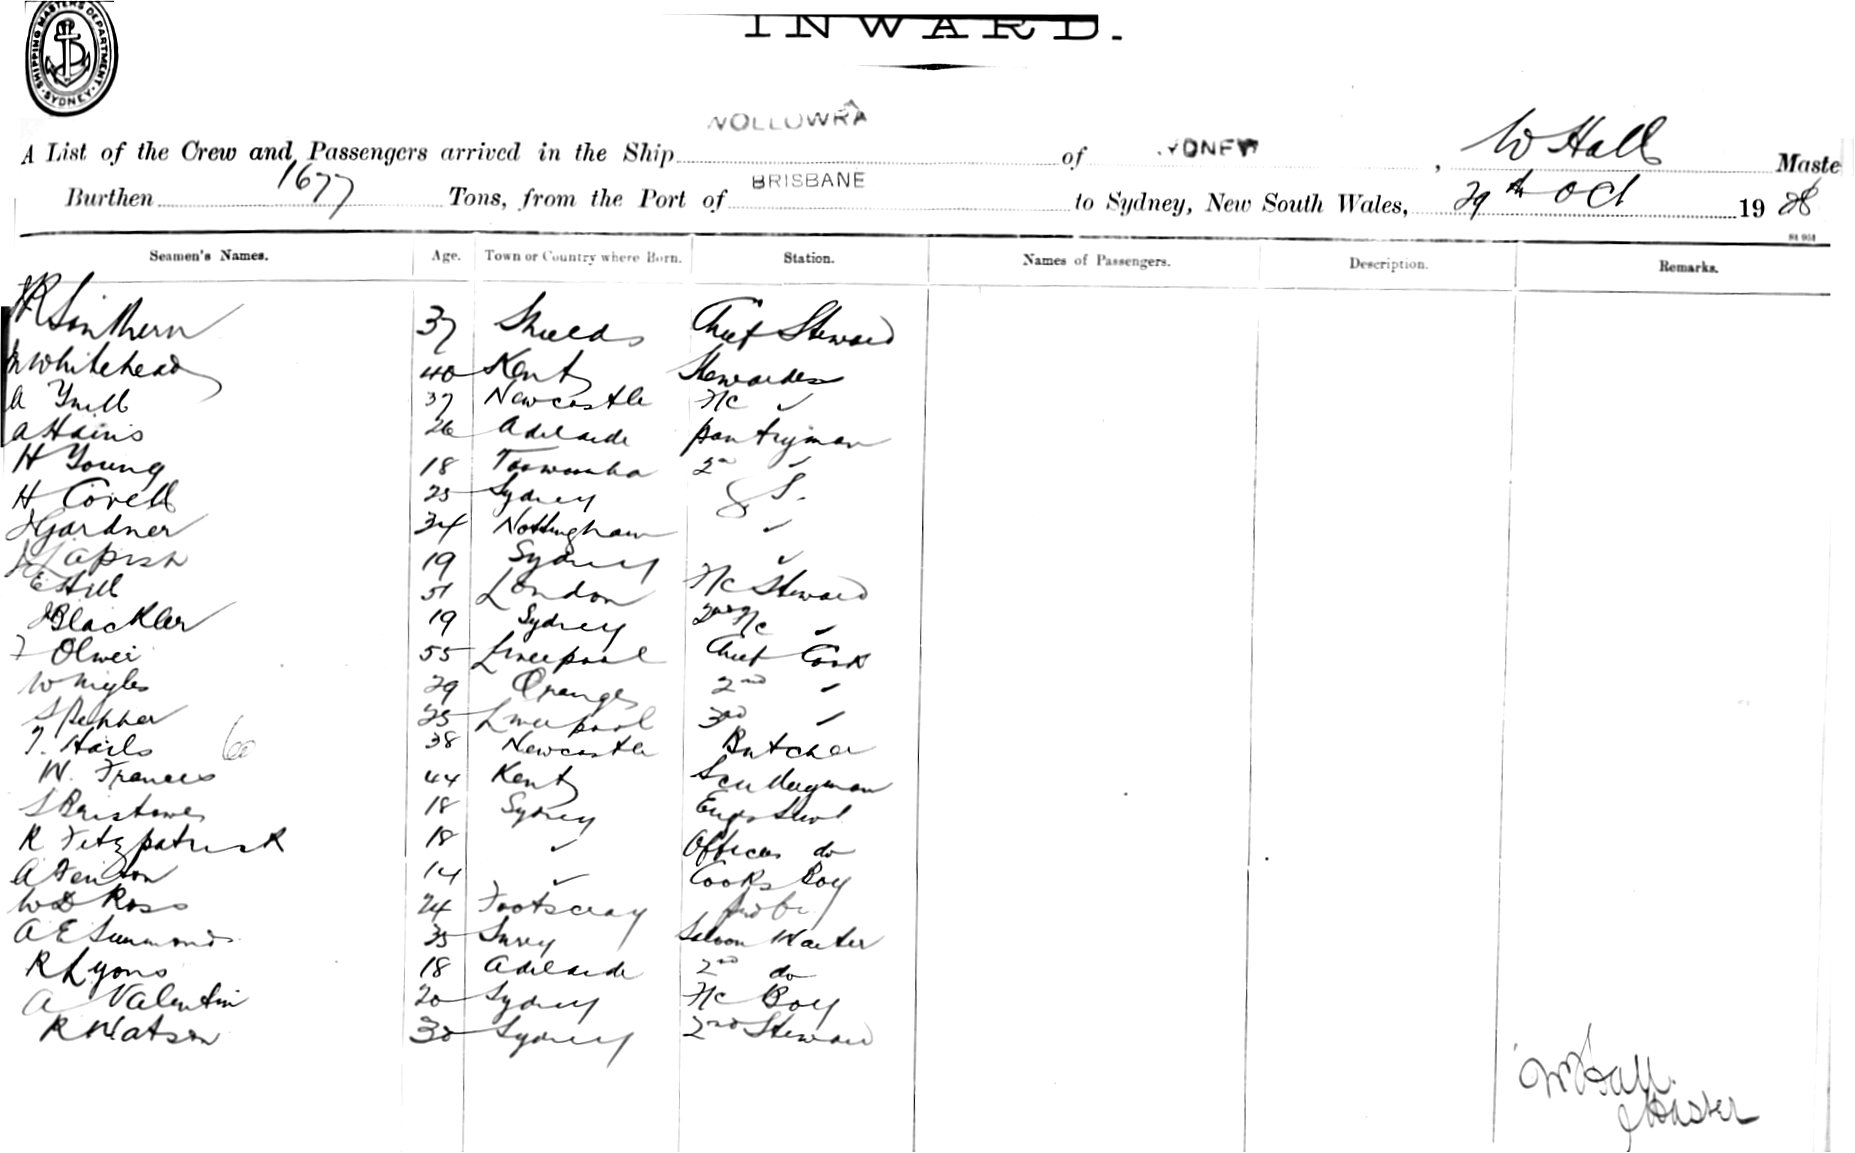 SHIPPING MASTERS DEPARTMENT. SYDNEY
INWARD.
A List of the Crew and Passengers arrived in the Ship WOLLOWRA of YDNEY, W Hall Maste
Burthen 1677 Tons, from the Port of BRISBANE to Sydney, New South Wales, 29th Oct 1928
Seamen's Names. Age. Town or Country where Born. Station. Names of Passengers. Description. Remarks.
37 Shields Chief Steward
Whitehead 40 Kent Stewardess
A 37 Newcastle F/c ✓
A Hains 26 Adelaide pantryman
H Young 18 Toowoomba 2nd ✓
H Covell 25 Sydney S.
J Gardner 34 Nottingham ✓
Lapish 19 Sydney ✓
E Hill 51 London F/c Steward
J Blackler 19 Sydney 2nd F/c ✓
55 Liverpool Chief Cook
W Myles 29 Orange 2nd ✓
S Pepper 25 Liverpool 3rd ✓
T. Hails 38 Newcastle Butcher
W. Frances 44 Kent Sculleryman
S Bristowe 18 Sydney Engrs Stwd
R Fitzpatrick 18 ✓ Officers do
A Fenton 14 ✓ Cooks Boy
W D Ross 24 Footscray
A E Simmonds 35 Surrey Saloon Waiter
R Lyons 18 Adelaide 2nd do
A Valentin 20 Sydney F/c Boy
R Watson 30 Sydney 2nd Steward
W Hall.
Master